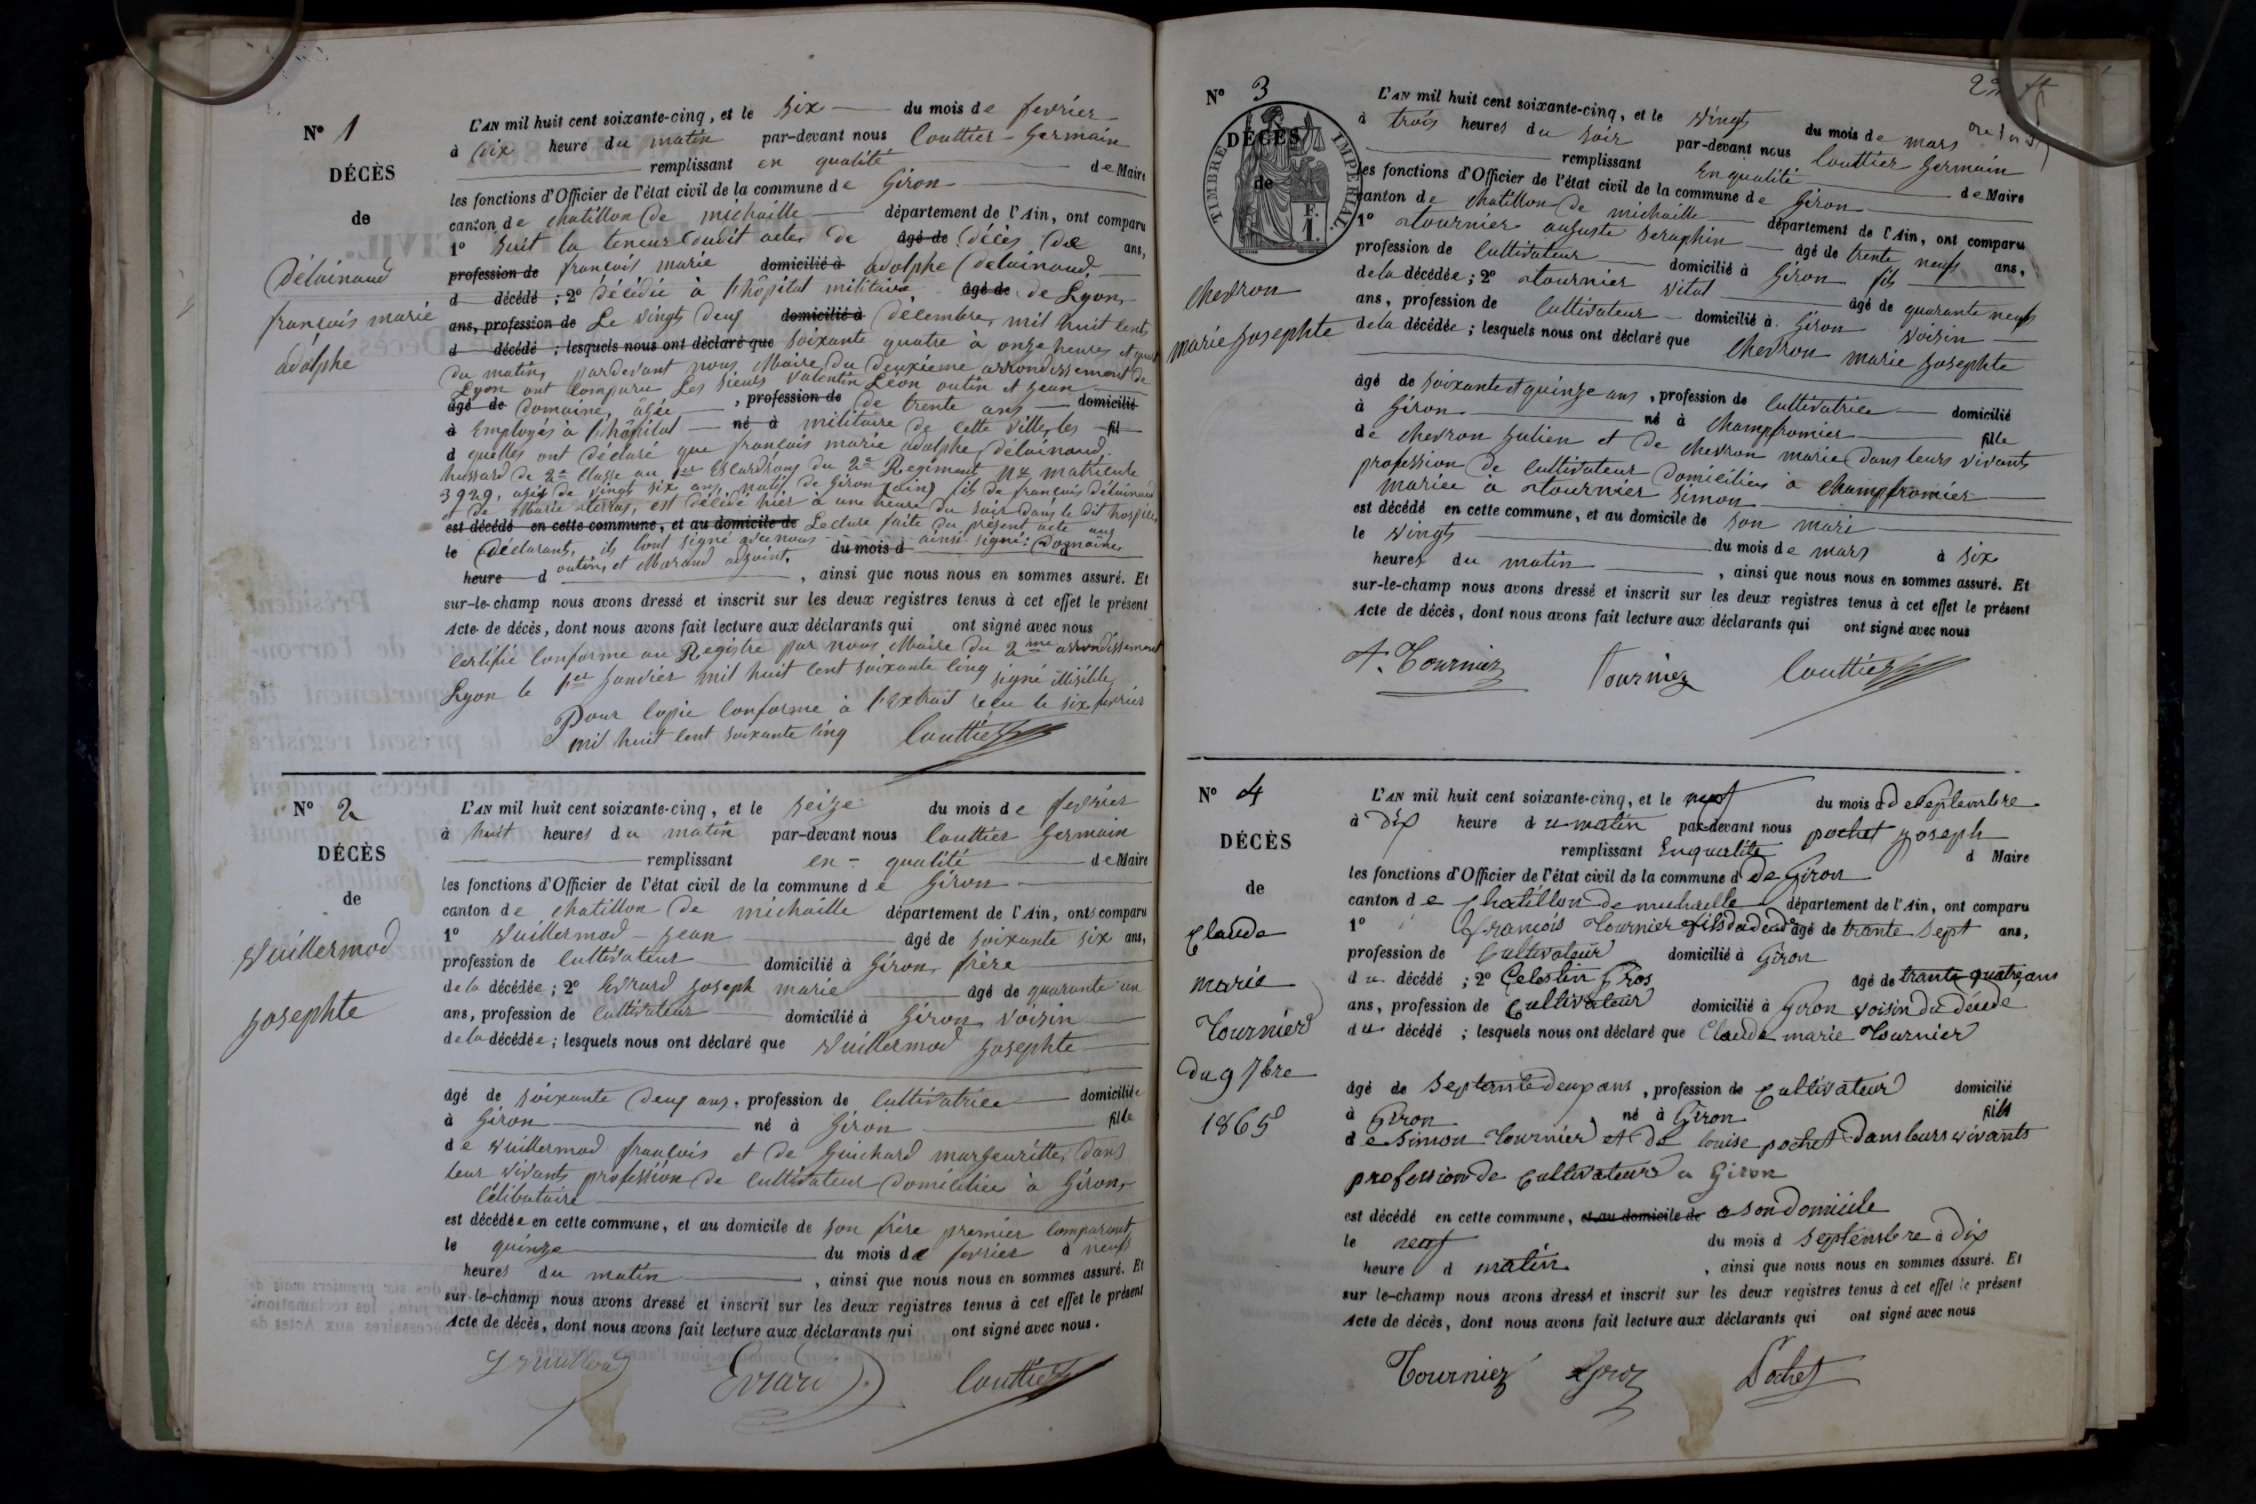 N° 1
DÉCÈS
de
Délainaud
françois marie
adolphe
L'AN mil huit cent soixante-cinq, et le six du mois de fevrier
à dix heure du matin par-devant nous Couttier Germain
remplissant en qualité de Maire
les fonctions d'Officier de l'état civil de la commune de Giron
canton de chatillon de michaille département de l'Ain, ont comparu
1° suit la teneur dudit acte de âgé de décès de ans,
profession de françois marie domicilié à adolphe délainaud.
d décédé ; 2° décédé à l'hôpital militaire âgé de de Lyon
ans, profession de Le vingt deux domicilié à décembre mil huit cent
d décédé ; lesquels nous ont déclaré que soixante quatre à onze heures et quart
du matin, pardevant nous Maire du deuxième arrondissement de
Lyon ont comparu Les sieurs Valentin Léon outin et jean
âgé de domaine, âgés , profession de de trente ans domicilié
à Employés à l'hôpital né à militaire de cette ville, les fil
d quelles ont déclaré que françois marie adolphe délainaud.
hussard de 2e classe au 1er Escardrons du 2e Regiment N4 matricule
3929, agé de vingt six ans, natif de Giron (ain) fils de françois délainaud
et de Marie terras, est décédé hier à une heure du soir dans le dit hospice
est décédé en cette commune, et au domicile de Lecture faite du présent acte aux
le déclarants, ils l'ont signé avec nous du mois d ainsi signé: Domaine
heure d outin, et Marand adjoint. , ainsi que nous nous en sommes assuré. Et
sur-le-champ nous avons dressé et inscrit sur les deux registres tenus à cet effet le présent
Acte de décès, dont nous avons fait lecture aux déclarants qui ont signé avec nous
Certifié conforme au Registre par nous Maire du 2me arrondissement
Lyon le 1er Janvier mil huit cent soixante cinq signé illisible
Pour copie conforme à l'extrait reçu le six fevrier
mil huit cent soixante cinq Couttier
N° 2
DÉCÈS
de
Vuillermod
josephte
L'AN mil huit cent soixante-cinq, et le seize du mois de fevrier
à huit heures du matin par-devant nous Couttier Germain
remplissant en qualité de Maire
les fonctions d'Officier de l'état civil de la commune de Giron
canton de chatillon de michaille département de l'Ain, ont comparu
1° Vuillermod jean âgé de soixante six ans,
profession de cultivateur domicilié à Giron frère
de la décédée ; 2° Evrard joseph marie âgé de quarante un
ans, profession de cultivateur domicilié à Giron voisin
de la décédée ; lesquels nous ont déclaré que Vuillermod josephte
âgé de soixante deux ans, profession de cultivatrice domiciliée
à Giron né à Giron fille
de Vuillermod françois et de Guichard margeuritte, dans
leur vivants profession de cultivateur domiciliés à Giron,
célibataire
est décédée en cette commune, et au domicile de son frère premier comparant
le quinze du mois de fevrier à neuf
heures du matin , ainsi que nous nous en sommes assuré. Et
sur-le-champ nous avons dressé et inscrit sur les deux registres tenus à cet effet le présent
Acte de décès, dont nous avons fait lecture aux déclarants qui ont signé avec nous.
Evrard Couttier
N° 3
TIMBRE IMPÉRIAL
F.
1.
DÉCÈS
de
chevron
marie josephte
L'AN mil huit cent soixante-cinq, et le vingt du mois de mars
à trois heures du soir par-devant nous Couttier Germain
remplissant En qualité de Maire
les fonctions d'Officier de l'état civil de la commune de Giron
canton de chatillon de michaille département de l'Ain, ont comparu
1° tournier auguste seraphin âgé de trente neuf ans,
profession de cultivateur domicilié à Giron fils
de la décédée ; 2° tournier vital âgé de quarante neuf
ans, profession de cultivateur domicilié à Giron voisin
de la décédée ; lesquels nous ont déclaré que chevron marie josephte
âgé de soixante et quinze ans, profession de cultivatrice domicilié
à Giron né à champfromier fille
de chevron julien et de chevron marie dans leurs vivants
profession de cultivateur domiciliés à champfromier
mariée à tournier simon
est décédé en cette commune, et au domicile de son mari
le vingt du mois de mars à six
heures du matin , ainsi que nous nous en sommes assuré. Et
sur-le-champ nous avons dressé et inscrit sur les deux registres tenus à cet effet le présent
Acte de décès, dont nous avons fait lecture aux déclarants qui ont signé avec nous
A. Tournier Tournier Couttier
N° 4
DÉCÈS
de
Claude
marie
Tournier
du 9 7bre
1865
L'AN mil huit cent soixante-cinq, et le neuf du mois d de septembre
à dix heure du matin par-devant nous pochet joseph
remplissant En qualité d Maire
les fonctions d'Officier de l'état civil de la commune d de Giron
canton de chatillon de michaille département de l'Ain, ont comparu
1° françois Tournier fils âgé de trante sept ans,
profession de cultivateur domicilié à Giron
du décédé ; 2° Celestin Gros âgé de trante quatre ans
ans, profession de cultivateur domicilié à Giron voisin du décédé
du décédé ; lesquels nous ont déclaré que Claude marie Tournier
âgé de septante deux ans, profession de cultivateur domicilié
à Giron né à Giron fils
de simon tournier et de louise pochet dans leurs vivants
profession de cultivateurs a Giron
est décédé en cette commune, et au domicile de a son domicile
le neuf du mois d septembre à dix
heure d matin , ainsi que nous nous en sommes assuré. Et
sur le-champ nous avons dressé et inscrit sur les deux registres tenus à cet effet le présent
Acte de décès, dont nous avons fait lecture aux déclarants qui ont signé avec nous
Tournier Gros Pochet